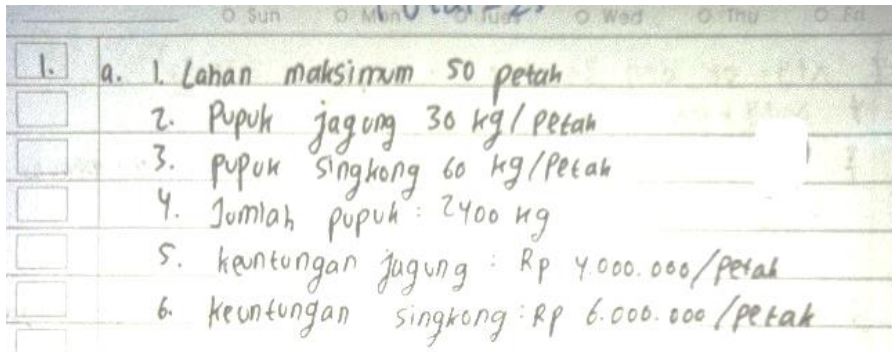 O Sun O Mon O Tues O Wed O Thu O Fri
1. a. 1. Lahan maksimum 50 petak
2. Pupuk jagung 30 kg/petak
3. pupuk singkong 60 kg/petak
4. Jumlah pupuk : 2400 kg
5. keuntungan jagung : Rp 4.000.000/petak
6. keuntungan singkong : Rp 6.000.000/petak